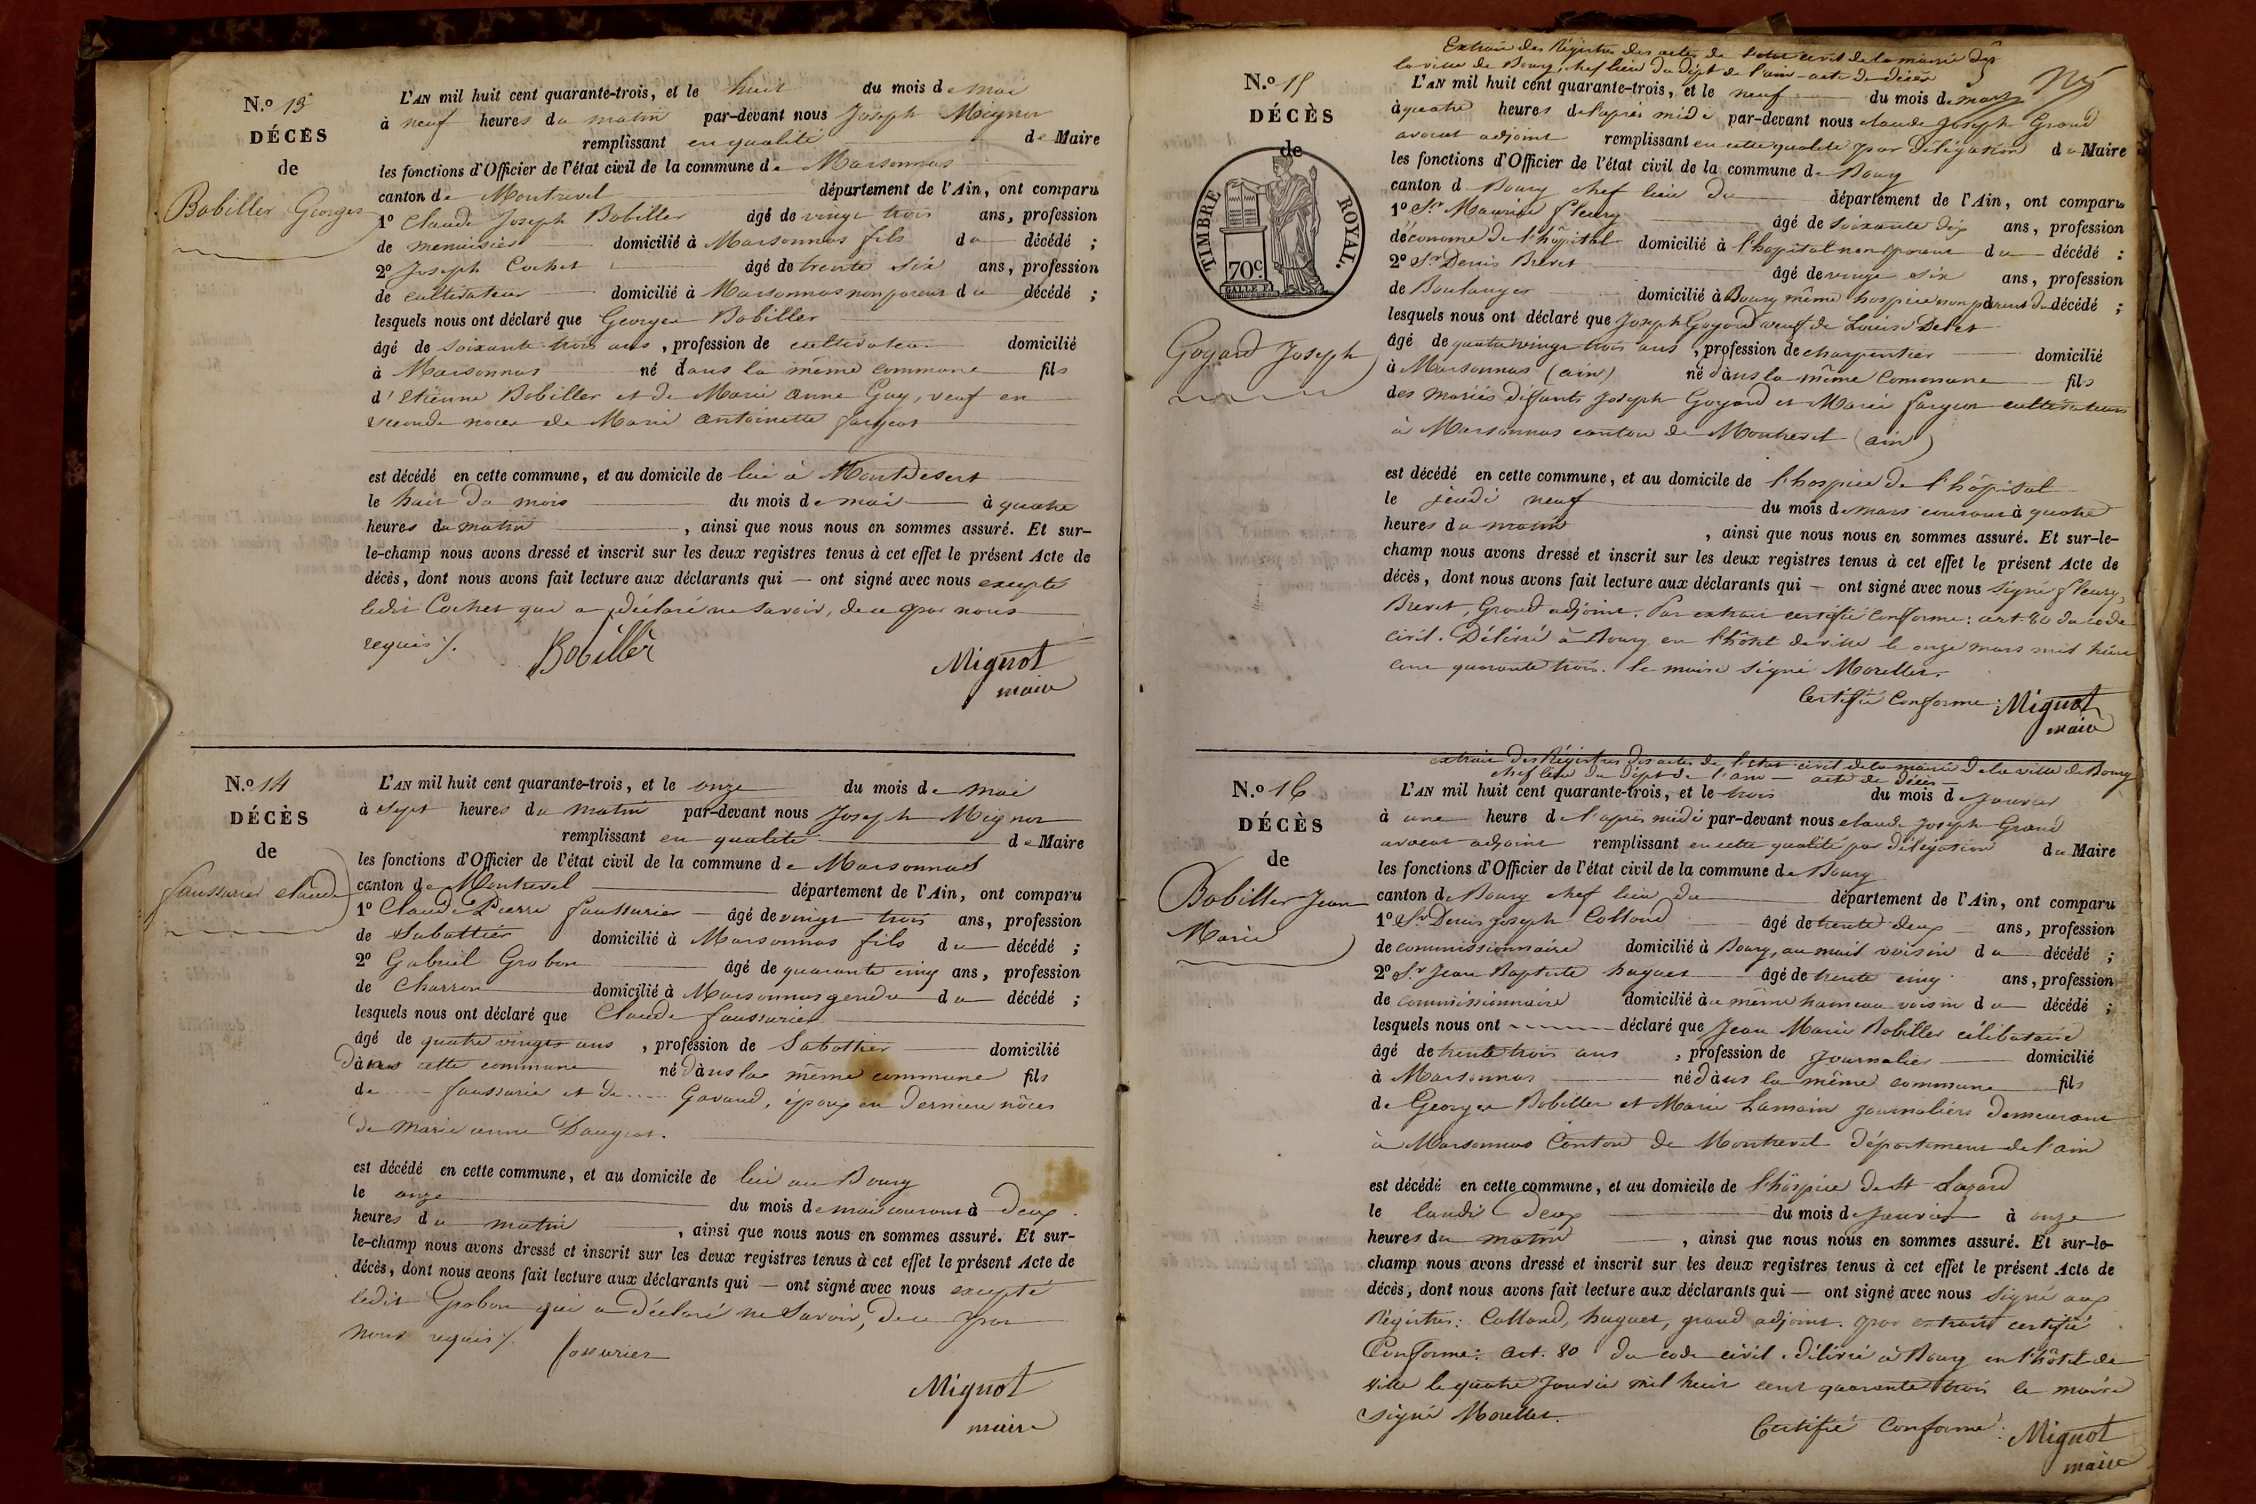 N.o 13
DÉCÈS
de
Bobiller Georges
L'AN mil huit cent quarante-trois, et le huit du mois de mai
à neuf heures du matin par-devant nous Joseph Mignot
remplissant en qualité de Maire
les fonctions d'Officier de l'état civil de la commune de Marsonnas
canton de Montrevel département de l'Ain, ont comparu
1o Claude Joseph Bobiller âgé de vingt trois ans, profession
de menuisier domicilié à Marsonnas fils du décédé ;
2o Joseph Cochet âgé de trente six ans, profession
de cultivateur domicilié à Marsonnas non parent du décédé ;
lesquels nous ont déclaré que Georges Bobiller
âgé de soixante trois ans, profession de cultivateur domicilié
à Marsonnas né dans la même commune fils
d'Etienne Bobiller et de Marie anne Guy, veuf en
seconde noces de Marie antoinette fargeot
est décédé en cette commune, et au domicile de lui à Montdesert
le huit du mois du mois de mai à quatre
heures du matin, ainsi que nous nous en sommes assuré. Et sur-
le-champ nous avons dressé et inscrit sur les deux registres tenus à cet effet le présent Acte de
décès, dont nous avons fait lecture aux déclarants qui — ont signé avec nous excepté
ledit Cochet qui a déclaré ne savoir, de ce par nous
requis /.
Bobiller
Mignot
maire
N.o 14
DÉCÈS
de
faussurier claude
L'AN mil huit cent quarante-trois, et le onze du mois de mai
à sept heures du matin par-devant nous Joseph Mignot
remplissant en qualité de Maire
les fonctions d'Officier de l'état civil de la commune de Marsonnas
canton de Montrevel département de l'Ain, ont comparu
1o Claude Pierre faussurier âgé de vingt trois ans, profession
de Sabottier domicilié à Marsonnas fils du décédé ;
2o Gabriel Grobon âgé de quarante cinq ans, profession
de Charron domicilié à Marsonnas gendre du décédé ;
lesquels nous ont déclaré que Claude faussurier
âgé de quatre vingts ans, profession de Sabottier domicilié
dans cette commune né dans la même commune fils
de ..... faussurier et de ..... Gavand, époux en derniere nôces
de Marie anne Daujat.
est décédé en cette commune, et au domicile de lui au Bourg
le onze du mois de mai courant à deux
heures du matin, ainsi que nous nous en sommes assuré. Et sur-
le-champ nous avons dressé et inscrit sur les deux registres tenus à cet effet le présent Acte de
décès, dont nous avons fait lecture aux déclarants qui — ont signé avec nous excepté
ledit Grobon qui a déclaré ne Savoir, de ce par
nous requis /.
fossurier
Mignot
maire
Extrait des Régistres des actes de l'état civil de la mairie de
la ville de Bourg, chef lieu du dépt de l'ain - acte de décès
N.o 15
DÉCÈS
de
TIMBRE ROYAL.
70c
Goyard Joseph
L'AN mil huit cent quarante-trois, et le neuf du mois de mars
à quatre heures de l'après midi par-devant nous claude Joseph Grand
avocat adjoint remplissant en cette qualité par délégation du Maire
les fonctions d'Officier de l'état civil de la commune de Bourg
canton d Bourg chef lieu du département de l'Ain, ont comparu
1o Sr Maurice fleury âgé de soixante dix ans, profession
d'économe de l'hôpital domicilié à l'hopital non parent du décédé :
2o Sr Denis Brevet âgé de vingt six ans, profession
de Boulanger domicilié à Bourg même hospice non parent du décédé ;
lesquels nous ont déclaré que Joseph Goyard veuf de Louise Debet
âgé de quatre vingt trois ans, profession de charpentier domicilié
à Marsonnas (ain) né dans la même Commune fils
des mariés défunts Joseph Goyard et Marie fargeot cultivateurs
à Marsonnas canton de Montrevel (ain)
est décédé en cette commune, et au domicile de l'hospice de l'hôpital
le jeudi neuf du mois de mars courant à quatre
heures du matin, ainsi que nous nous en sommes assuré. Et sur-le-
champ nous avons dressé et inscrit sur les deux registres tenus à cet effet le présent Acte de
décès, dont nous avons fait lecture aux déclarants qui — ont signé avec nous signé fleury,
Brevet, Grand adjoint. Par extrait certifié conforme : art. 80 du code
civil. Délivré à Bourg en l'hôtel de ville le onze mars mil huit
cent quarante trois. le maire signé Morellet.
Certifié Conforme : Mignot
maire
extrait des Régistres des actes de l'état civil de la mairie de la ville de Bourg
chef lieu du dépt de l'ain — acte de décès
N.o 16
DÉCÈS
de
Bobiller Jean
Marie
L'AN mil huit cent quarante-trois, et le trois du mois de janvier
à une heure de l'après midi par-devant nous claude Joseph Grand
avocat adjoint remplissant en cette qualité par délégation du Maire
les fonctions d'Officier de l'état civil de la commune de Bourg
canton de Bourg chef lieu du département de l'Ain, ont comparu
1o Sr Denis joseph Colland âgé de trente deux ans, profession
de commissionnaire domicilié à Bourg, au mail voisin du décédé ;
2o Sr Jean Baptiste huguet âgé de trente cinq ans, profession
de commissionnaire domicilié au même hameau voisin du décédé ;
lesquels nous ont déclaré que Jean Marie Bobiller célibataire
âgé de trente trois ans, profession de journalier domicilié
à Marsonnas né dans la même commune fils
de Georges Bobiller et Marie Lamain journaliers demeurant
à Marsonnas Canton de Montrevel département de l'ain
est décédé en cette commune, et au domicile de l'hospice de St Lazard
le lundi deux du mois de janvier à onze
heures du matin, ainsi que nous nous en sommes assuré. Et sur-le-
champ nous avons dressé et inscrit sur les deux registres tenus à cet effet le présent Acte de
décès, dont nous avons fait lecture aux déclarants qui — ont signé avec nous signé aux
Régistres : Colland, huguet, grand adjoint. par extrait certifié
Conforme : art. 80 du code civil. délivré à Bourg en l'hôtel de
ville le quatre Janvier mil huit cent quarante trois le maire
signé Morellet.
Certifié Conforme : Mignot
maire